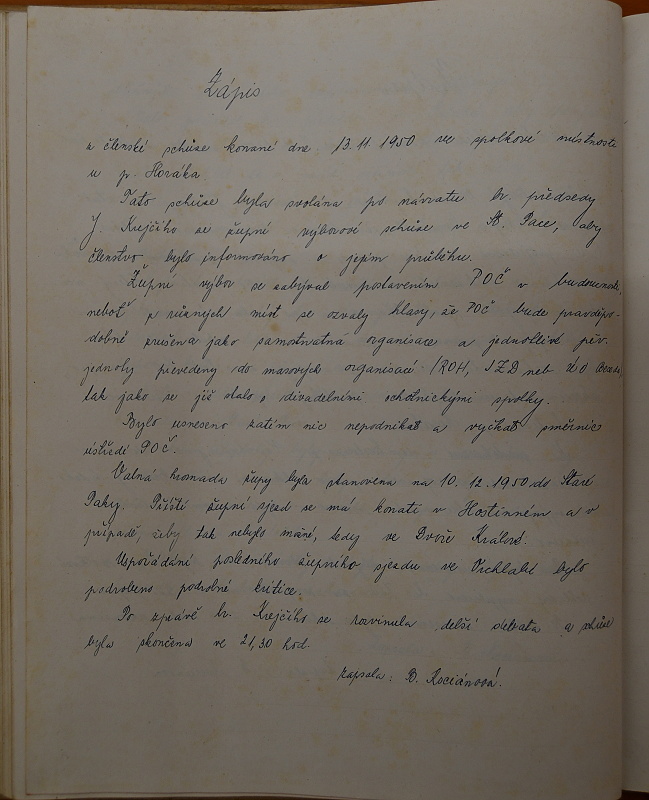 Zápis
z členské schůze konané dne 13.11.1950 ve spolkové místnosti
u p. Horáka
Tato schůze byla svolána po návratu br. předsedy
J. Krejčího se župní výborové schůze ve St. Pace, aby
členstvo bylo informováno o jejím průběhu.
Župní výbor se zabýval postavením POČ v budoucnosti,
neboť z různých míst se ozvaly hlasy, že POČ bude pravděpo-
dobně zrušena jako samostatná organisace a jednotlivé pěv.
jednoty převedeny do masových organisací (ROH, JZD neb
tak jako se již stalo s divadelními ochotnickými spolky.
Bylo usneseno zatím nic nepodnikat a vyčkat směrnic
ústředí POČ.
Valná hromada župy byla stanovena na 10.12.1950 do Staré
Paky. Příští župní sjezd se má konati v Hostinném a v
případě, žeby tak nebylo možné, tedy ve Dvoře Králové.
Uspořádání posledního župního sjezdu ve Vrchlabí bylo
podrobeno podrobné kritice.
Po zprávě br. Krejčího se rozvinula delší debata a schůze
byla skončena ve 21,30 hod.
zapsala: B. Kociánová.